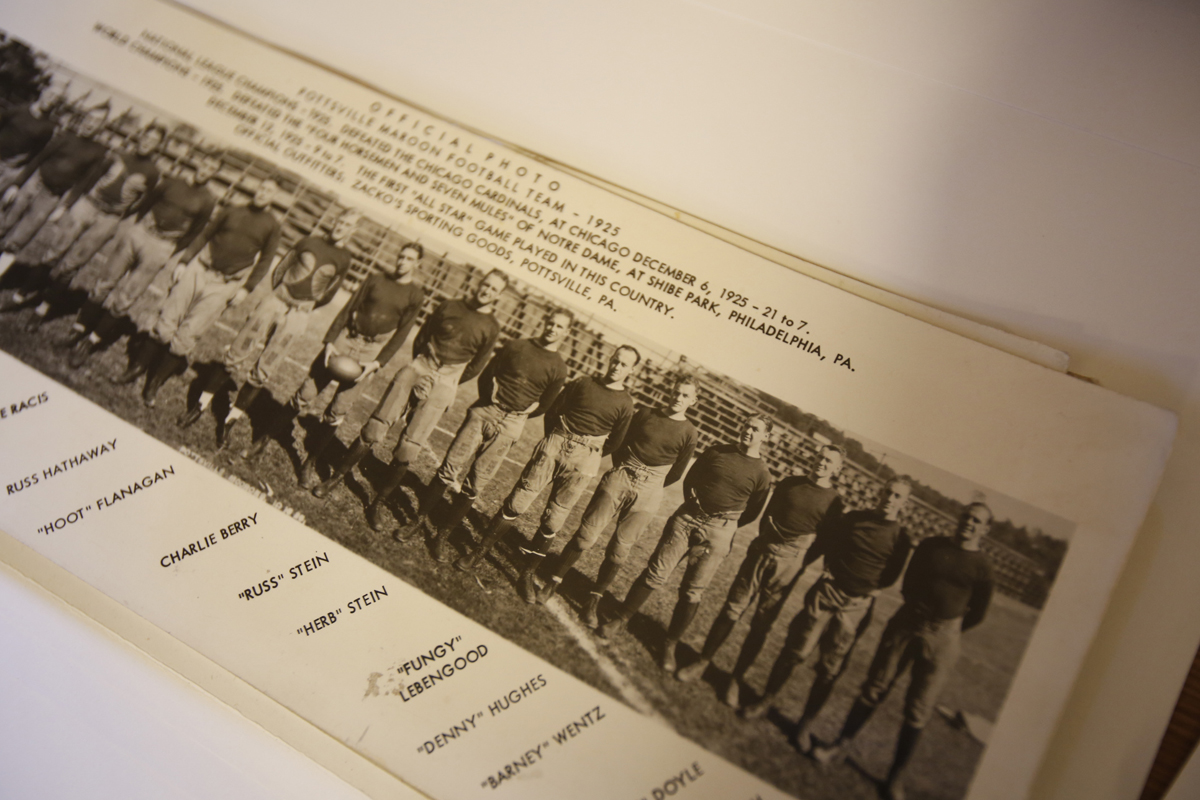 OFFICIAL PHOTO
POTTSVILLE MAROON FOOTBALL TEAM - 1925
NATIONAL LEAGUE CHAMPIONS - 1925. DEFEATED THE CHICAGO CARDINALS, AT CHICAGO DECEMBER 6, 1925 - 21 to 7.
WORLD CHAMPIONS - 1925. DEFEATED THE "FOUR HORSEMEN AND SEVEN MULES" OF NOTRE DAME, AT SHIBE PARK, PHILADELPHIA, PA.
DECEMBER 12, 1925 - 9 to 7. THE FIRST "ALL STAR" GAME PLAYED IN THIS COUNTRY.
OFFICIAL OUTFITTERS: ZACKO'S SPORTING GOODS, POTTSVILLE, PA.
E RACIS
RUSS HATHAWAY
"HOOT" FLANAGAN
CHARLIE BERRY
"RUSS" STEIN
"HERB" STEIN
"FUNGY"
LEBENGOOD
"DENNY" HUGHES
"BARNEY" WENTZ
DOYLE